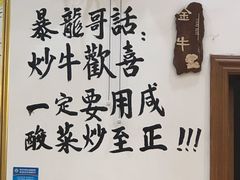 暴龍哥話：
炒牛歡喜
一定要用咸
酸菜炒至正!!!
金牛